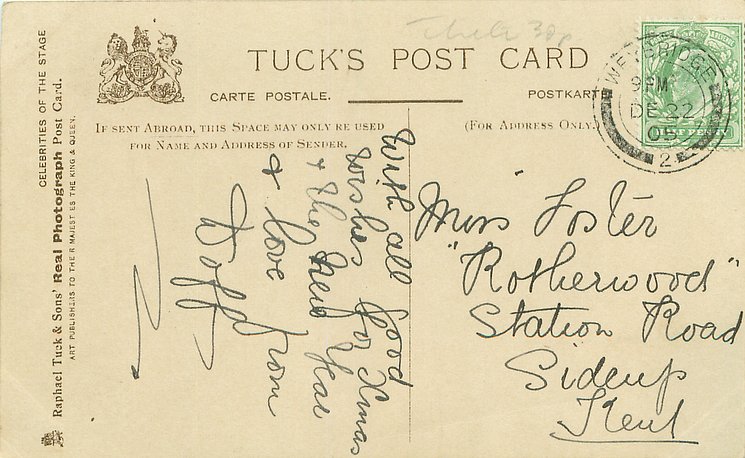 TUCK'S POST CARD
CARTE POSTALE.
POSTKARTE
IF SENT ABROAD, THIS SPACE MAY ONLY BE USED
FOR NAME AND ADDRESS OF SENDER.
(FOR ADDRESS ONLY.)
CELEBRITIES OF THE STAGE
Raphael Tuck & Sons' Real Photograph Post Card.
ART PUBLISHERS TO THEIR MAJESTIES THE KING & QUEEN.
WEYBRIDGE
9 PM
DE 22
05
2
With all Good
Wishes for Xmas
& the New Year
& love from
Doff
Miss Foster
"Rotherwood"
Station Road
Sidcup
Kent
30p